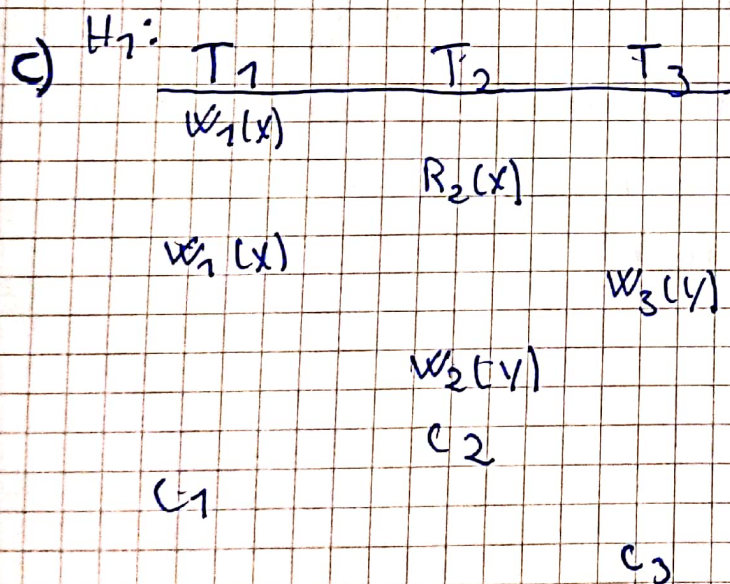 c) H1:
T1 T2 T3
W1(x)
R2(x)
W1(x)
W3(y)
W2(y)
C2
C1
C3